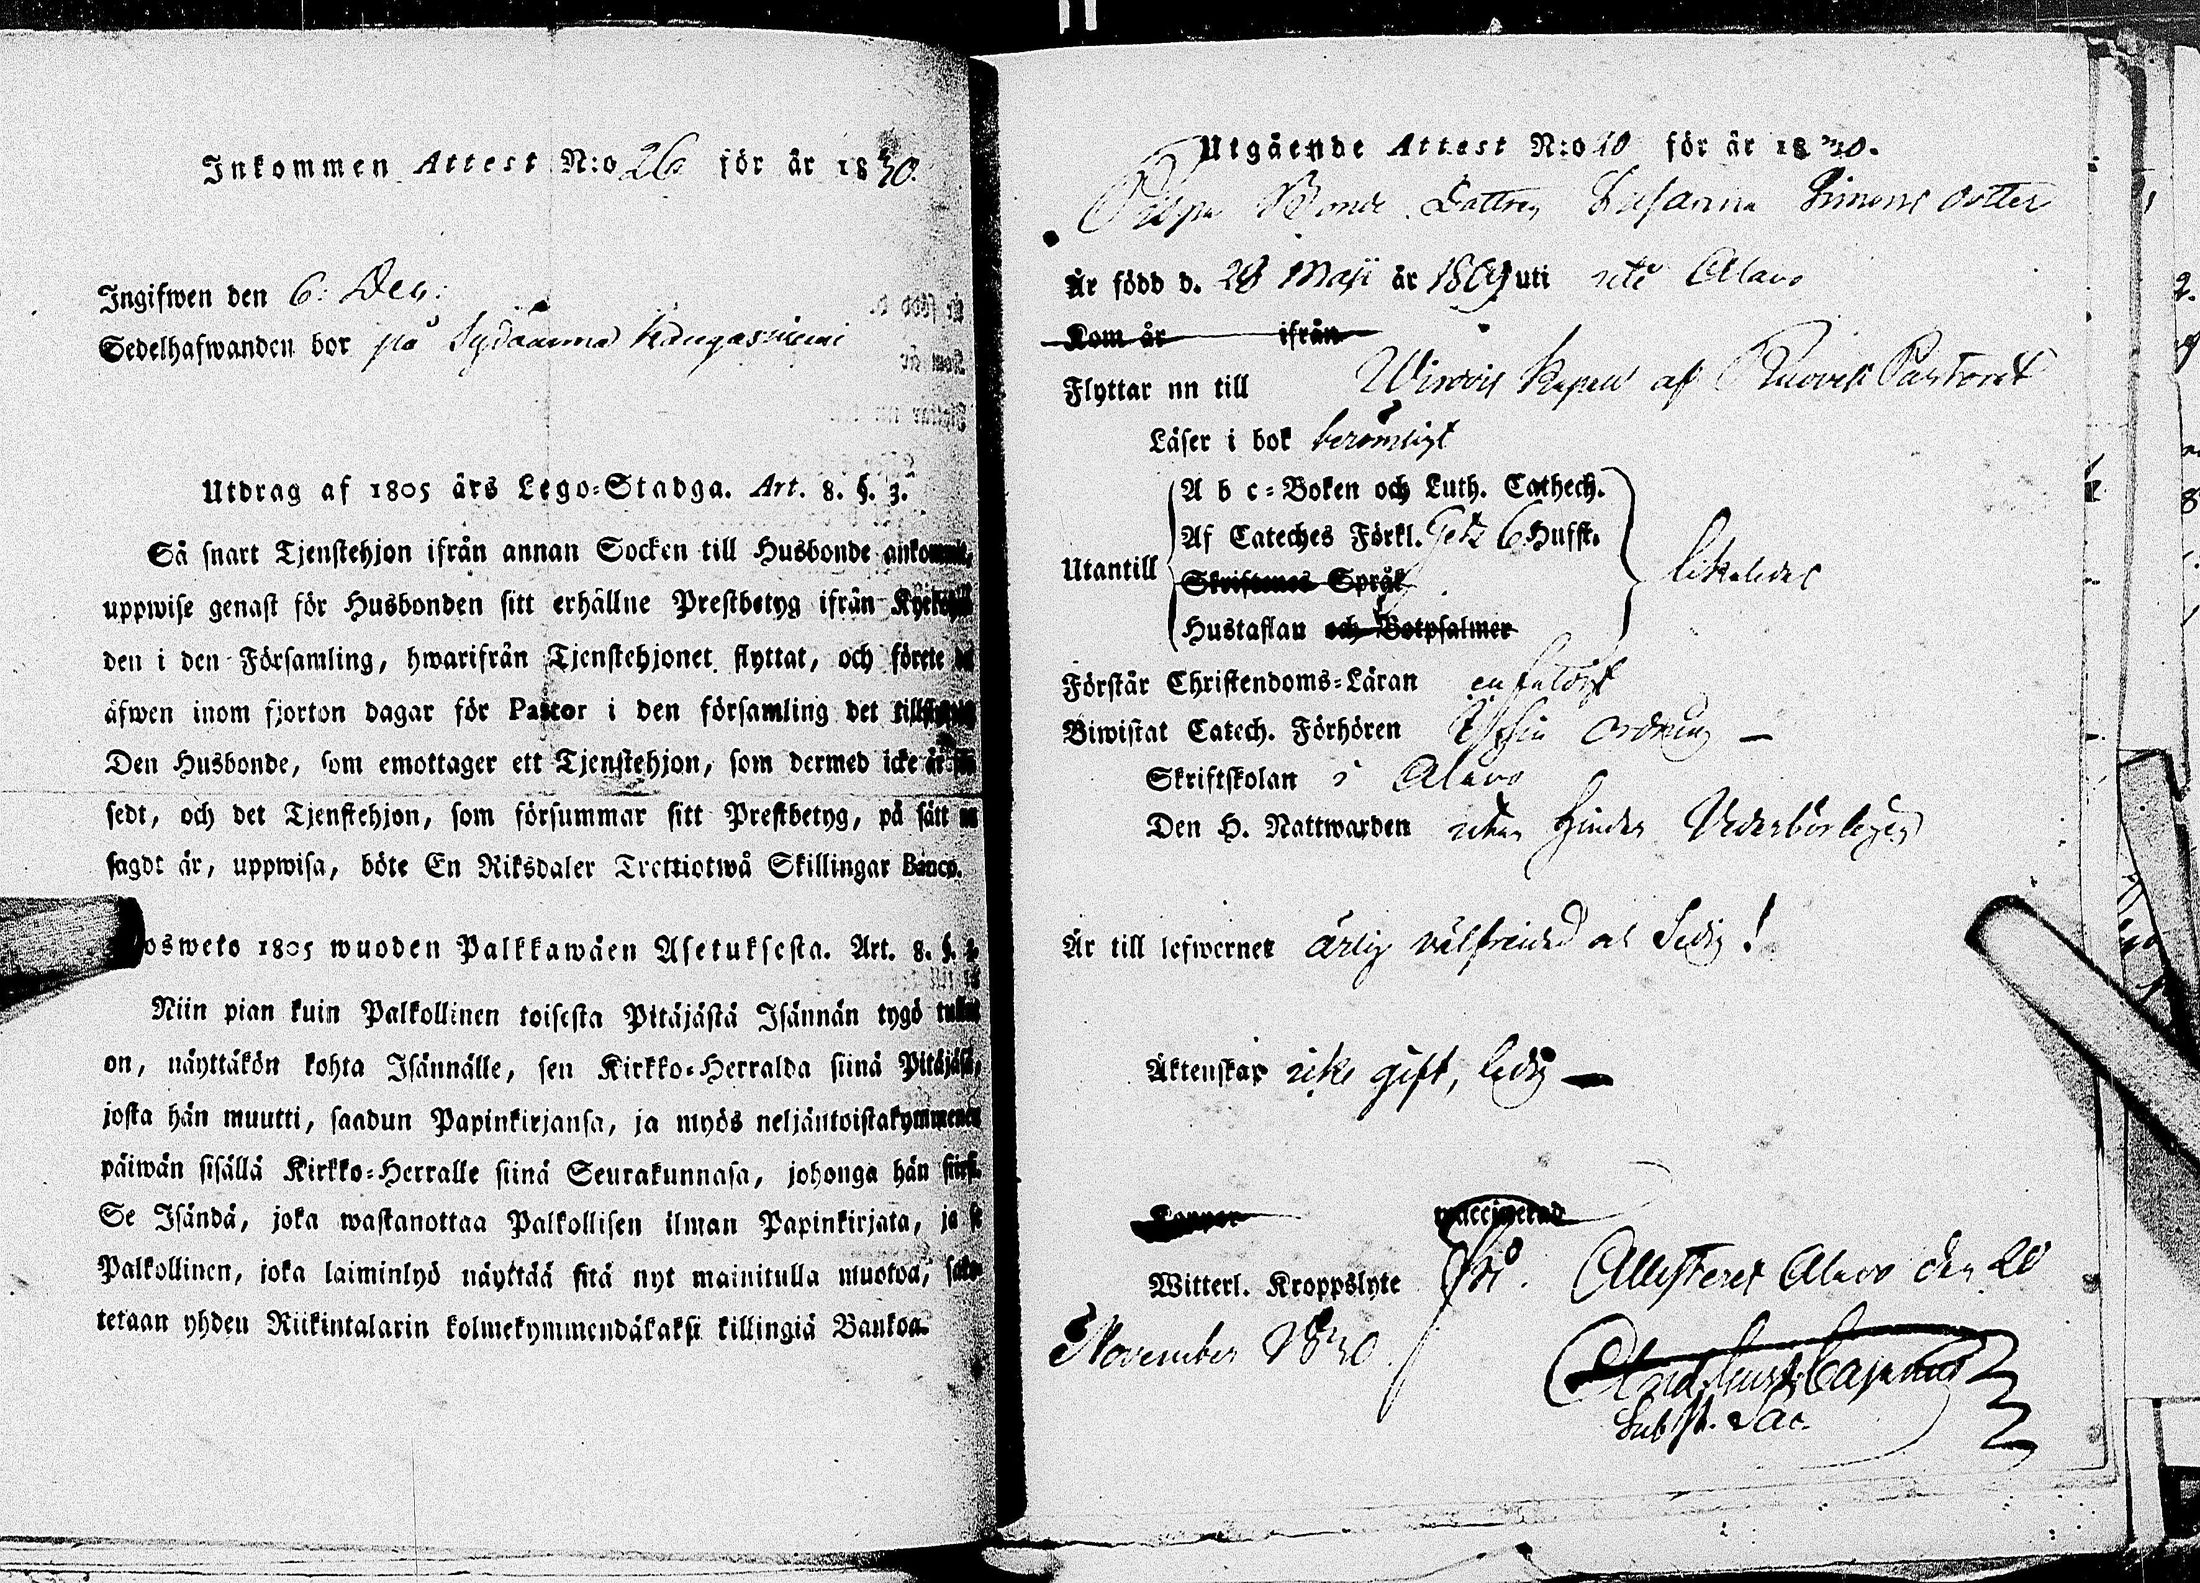 Inkommen Attest N:o 26 för år 1830.
Ingifwen den 6: Dec:
Sedelhafwanden bor på Sydänmaa Kangasniemi
Utdrag af 1805 års Lego=Stadga. Art. 8. §. 3.
Så snart Tjenstehjon ifrån annan Socken till Husbonde
uppwise genast för Husbonden sitt erhållne Prestbetyg ifrån
den i den Församling, hwarifrån Tjenstehjonet flyttat, och förete
äfwen inom fjorton dagar för Pastor i den församling det
Den Husbonde, som emottager ett Tjenstehjon, som dermed icke är
sedt, och det Tjenstehjon, som försummar sitt Prestbetyg, på sätt
sagdt är, uppwisa, böte En Riksdaler Trettiotwå Skillingar Banco.
osweto 1805 wuoden Palkkawäen Asetuksesta. Art. 8. §.
Niin pian kuin Palkollinen toisesta Pitäjästä Isännän tygö
on, näyttäkön kohta Isännälle, sen Kirkko=Herralda siinä
josta hän muutti, saadun Papinkirjansa, ja myös neljäntoistakymmenen
päiwän sisällä Kirkko=Herralle siinä Seurakunnasa, johonga hän
Se Isändä, joka wastanottaa Palkollisen ilman Papinkirjata, ja
Palkollinen, joka laiminlyö näyttää sitä nyt mainitulla muotoa,
tetaan yhden Riikintalarin kolmekymmendäkaksi killingiä Bankoa.
Utgående Attest N:o 20 för år 1830.
Bonde Dottren Susanna Simons dotter
Är född d. 28 Maji år 1809 uti Alavo
Kom år ifrån
Flyttar nu till Wirdois Kapell af Ruovesi Pastorat
Läser i bok berömligt
A b c=Boken och Luth. Cathech.
Af Cateches Förkl. 6 Hufst.
Utantill likaledes
Skriftenes Språk
Hustaflan och Botpsalmer
Förstår Christendoms=Läran enfaldigt
Biwistat Catech. Förhören i sin ordning —
Skriftskolan i Alavo
Den H. Nattwarden utan hinder Vederbörligen
Är till lefwernet ärlig välfreidad och ledig!
Äktenskap icke gift, ledig —
Koppor vaccinerad
Witterl. Kroppslyte fri. Attesteras Alavo den 20
November 1830.
And. Gust. Cajanus
Subst. Sac.